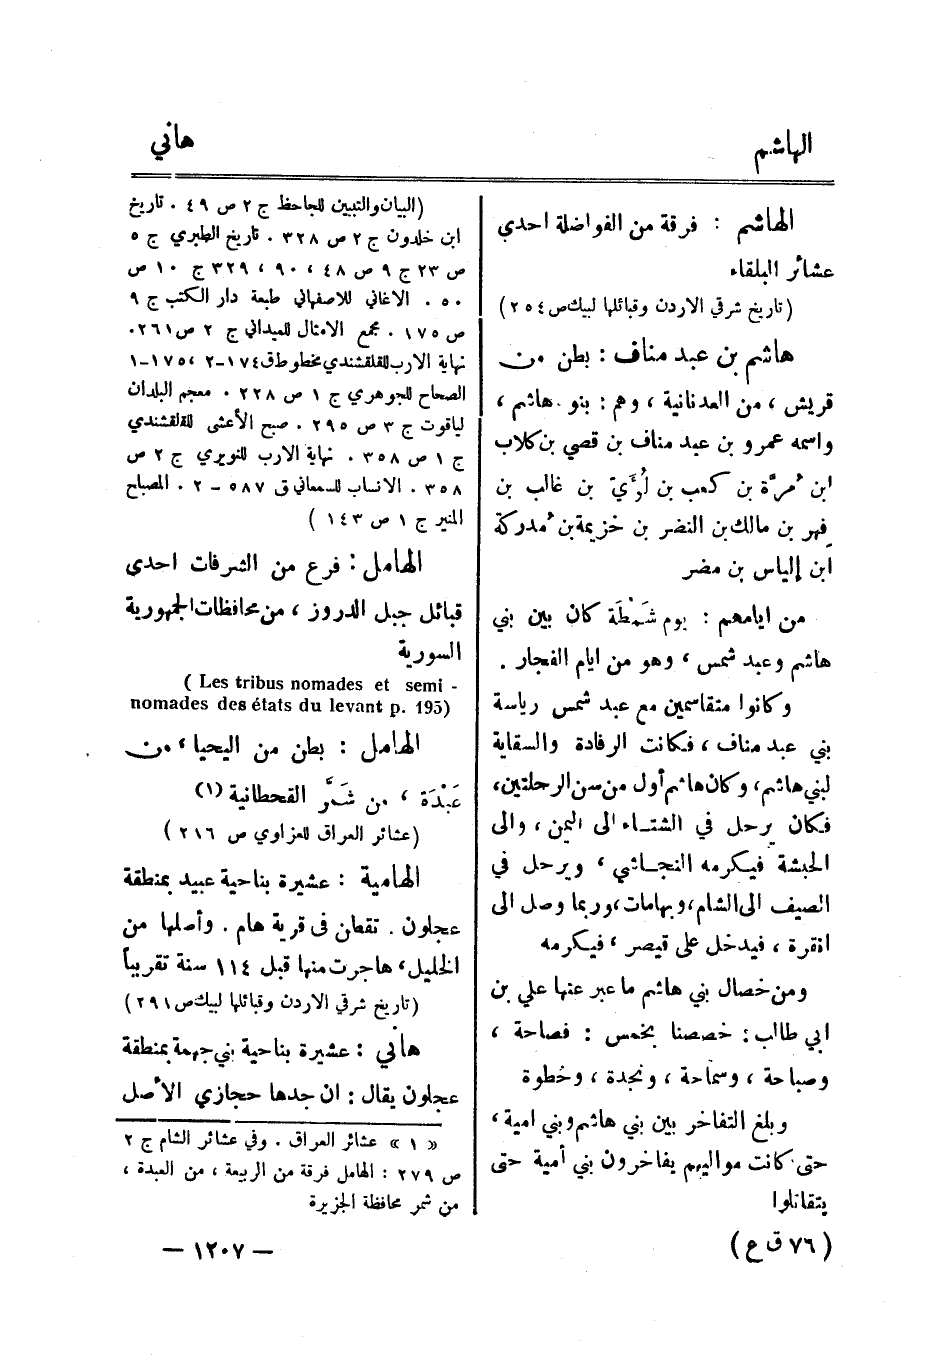 الهاشم
هاني
الهاشم : فرقة من الفواضلة احدى
عشائر البلقاء
(تاريخ شرقي الاردن وقبائلها لبيك ص ٢٥٤)
هاشم بن عبد مناف : بطن من
قريش ، من العدنانية ، وهم : بنو هاشم ،
واسمه عمرو بن عبد مناف بن قصي بن كلاب
ابن مُرَّة بن كعب بن لُؤَيّ بن غالب بن
فهر بن مالك بن النضر بن خزيمة بن مُدركة
ابن إلياس بن مضر
من ايامهم : يوم شَمْطَة كان بين بني
هاشم وعبد شمس ، وهو من ايام الفجار .
وكانوا متقاسمين مع عبد شمس رياسة
بني عبد مناف ، فكانت الرفادة والسقاية
لبني هاشم ، وكان هاشم أول من سن الرحلتين ،
فكان يرحل في الشتاء الى اليمن ، والى
الحبشة فيكرمه النجاشي ، ويرحل في
الصيف الى الشام ، وبهامات ، وربما وصل الى
انقرة ، فيدخل على قيصر ، فيكرمه
ومن خصال بني هاشم ما عبر عنها علي بن
ابي طالب : خصصنا بخمس : فصاحة ،
وصباحة ، وسماحة ، ونجدة ، وخطوة
وبلغ التفاخر بين بني هاشم وبني امية ،
حتى كانت مواليهم يفاخرون بني أمية حتى
يتقاتلوا
(البيان والتبيين للجاحظ ج ٢ ص ٤٩ . تاريخ
ابن خلدون ج ٢ ص ٣٢٨ . تاريخ الطبري ج ٥
ص ٢٣ ج ٩ ص ٤٨ ، ٩٠ ، ٣٢٩ ج ١٠ ص
٥٠ . الاغاني للاصفهاني طبعة دار الكتب ج ٩
ص ١٧٥ . مجمع الامثال للميداني ج ٢ ص ٢٦١ .
نهاية الارب للقلقشندي مخطوط ق ١٧٤-٢ ، ١٧٥-١
الصحاح للجوهري ج ١ ص ٢٢٨ . معجم البلدان
لياقوت ج ٣ ص ٢٩٥ . صبح الأعشى للقلقشندي
ج ١ ص ٣٥٨ . نهاية الارب للنويري ج ٢ ص
٣٥٨ . الانساب للسمعاني ق ٥٨٧ - ٢ . المصباح
المنير ج ١ ص ١٤٣ )
الهامل : فرع من الشرفات احدى
قبائل جبل الدروز ، من محافظات الجمهورية
السورية
( Les tribus nomades et semi -
nomades des états du levant p. 195)
الهامل : بطن من اليحيا ، من
عَبْدَة ، من شَمَّر القحطانية (١)
(عشائر العراق للعزاوي ص ٢١٦ )
الهامية : عشيرة بناحية عبيد بمنطقة
عجلون . تقطن في قرية هام . وأصلها من
الخليل ، هاجرت منها قبل ١١٤ سنة تقريباً
(تاريخ شرقي الاردن وقبائلها لبيك ص ٢٩١ )
هاني : عشيرة بناحية بني جهمة بمنطقة
عجلون يقال : ان جدها حجازي الأصل
« ١ » عشائر العراق . وفي عشائر الشام ج ٢
ص ٢٧٩ : الهامل فرقة من الربيعة ، من العبدة ،
من شمر محافظة الجزيرة
( ٧٦ ق ع )
— ١٢٠٧ —